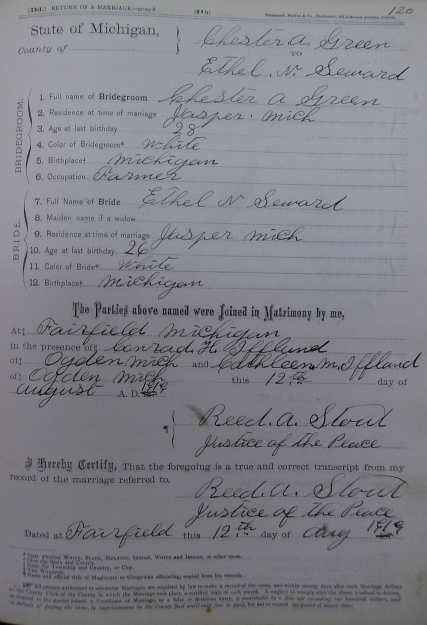 RETURN OF A MARRIAGE
120
State of Michigan,
County of
Chester A. Green
TO
Ethel N. Seward
BRIDEGROOM.
1. Full name of Bridegroom Chester A Green
2. Residence at time of marriage Jasper. Mich
3. Age at last birthday 28
4. Color of Bridegroom* White
5. Birthplace† Michigan
6. Occupation Farmer
BRIDE.
7. Full Name of Bride Ethel N Seward
8. Maiden name if a widow
9. Residence at time of marriage Jasper Mich
10. Age at last birthday 26
11. Color of Bride* White
12. Birthplace† Michigan
The Parties above named were Joined in Matrimony by me,
At‡ Fairfield Michigan
in the presence of§ Conrad H. Iffland
of‡ Ogden Mich and Cathleen M. Iffland
of‡ Ogden Mich this 12th day of
August A. D. 1919
¶ Reed. A. Stout
Justice of the Peace
I Hereby Certify, That the foregoing is a true and correct transcript from my
record of the marriage referred to.
Reed. A. Stout
Justice of the Peace
Dated at Fairfield this 12th day of Aug 1919
* State whether White, Black, Mulatto, Indian, White and Indian, or other races.
† Give the State and County.
‡ Give the Township and County, or City.
§ Two Witnesses.
¶ Name and official title of Magistrate or Clergyman officiating, copied from his records.